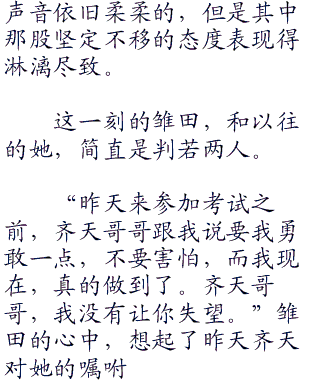 声音依旧柔柔的，但是其中
那股坚定不移的态度表现得
淋漓尽致。
这一刻的雏田，和以往
的她，简直是判若两人。
“昨天来参加考试之
前，齐天哥哥跟我说要我勇
敢一点，不要害怕，而我现
在，真的做到了。齐天哥
哥，我没有让你失望。”雏
田的心中，想起了昨天齐天
对她的嘱咐